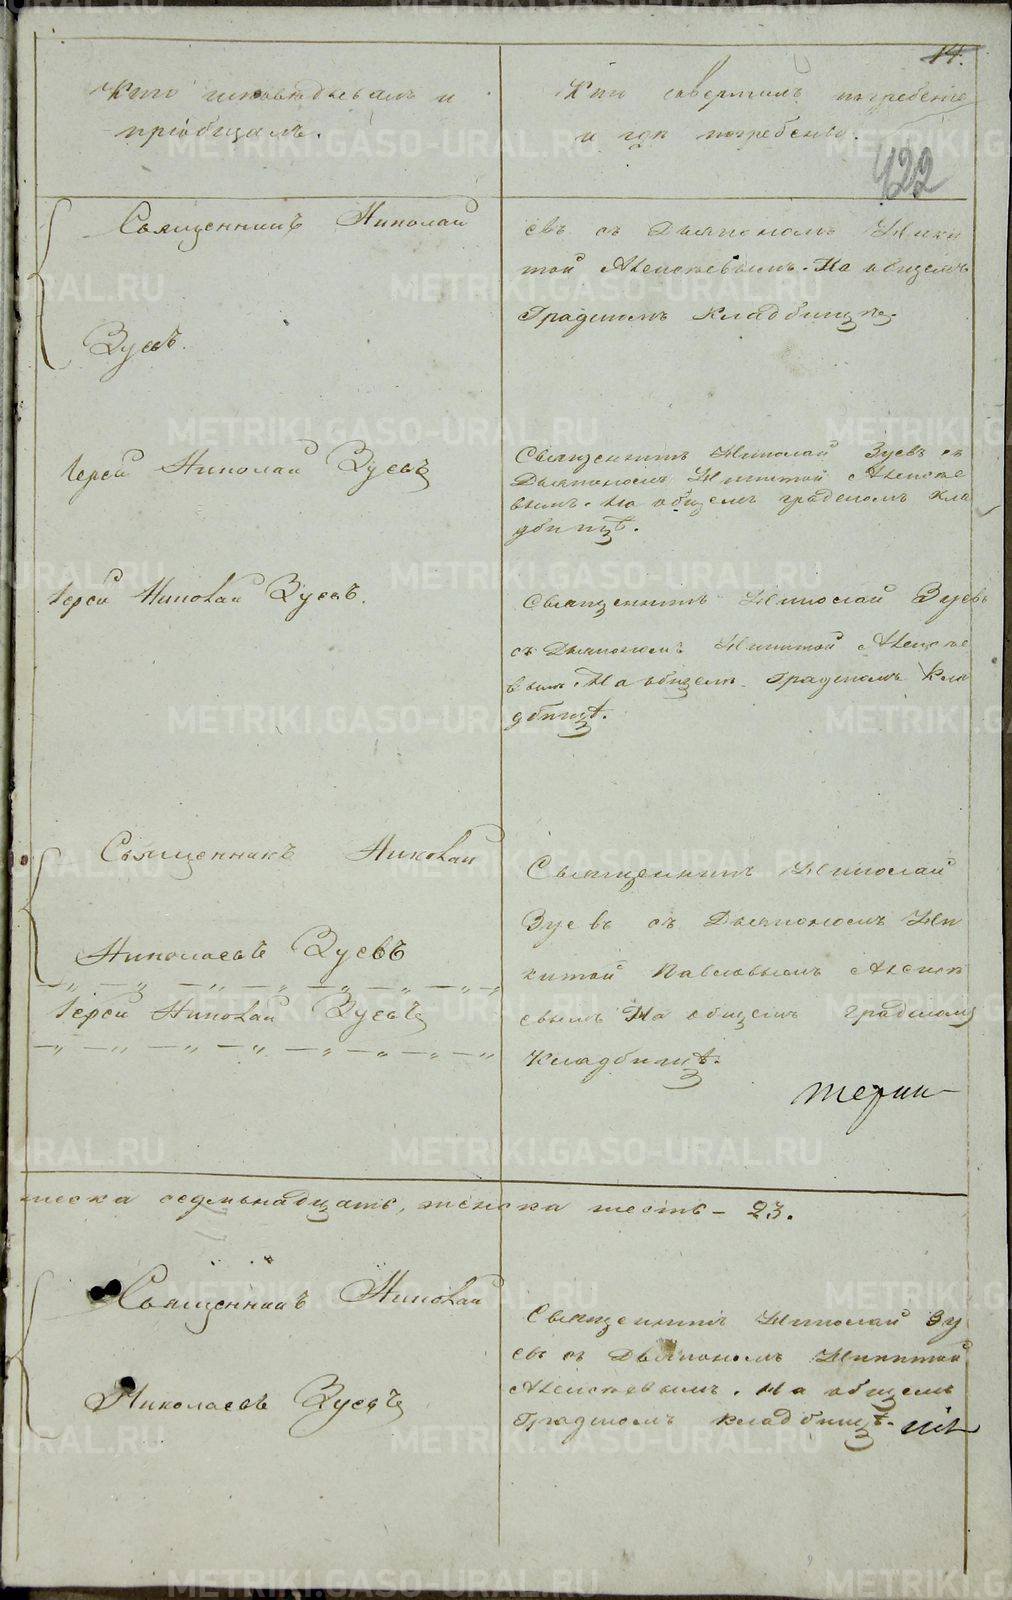 14.
Кто исповѣдывалъ и
пріобщалъ.
Кто совершилъ погребеніе
и гдѣ погребены.
422
Священникъ Николай
Зуевъ.
евъ съ Дьякономъ Ники
той Алексѣевымъ. На общемъ
Градскомъ Кладбищѣ.
Іерей Николай Зуевъ
Священникъ Николай Зуевъ съ
Дьякономъ Никитой Алексѣе
вымъ. На общемъ градскомъ кла
дбищѣ.
Іерей Николай Зуевъ.
Священникъ Николай Зуевъ
съ Дьякономъ Никитой Алексѣе
вым. На общемъ Градскомъ Кла
дбищѣ.
Священникъ Николай
Николаевъ Зуевъ
Іерей Николай Зуевъ
Священникъ Николай
Зуевъ съ Дьякономъ Ни
китой Павловымъ Алексѣ
евымъ На общемъ градскомъ
Кладбищѣ.
жеска седмьнадцать, женска шесть – 23.
Священникъ Николай
Николаевъ Зуевъ
Священникъ Николай Зу
евъ съ Дьякономъ Никитой
Алексѣевымъ. На общемъ
Градскомъ кладбищѣ.
METRIKI.GASO-URAL.RU